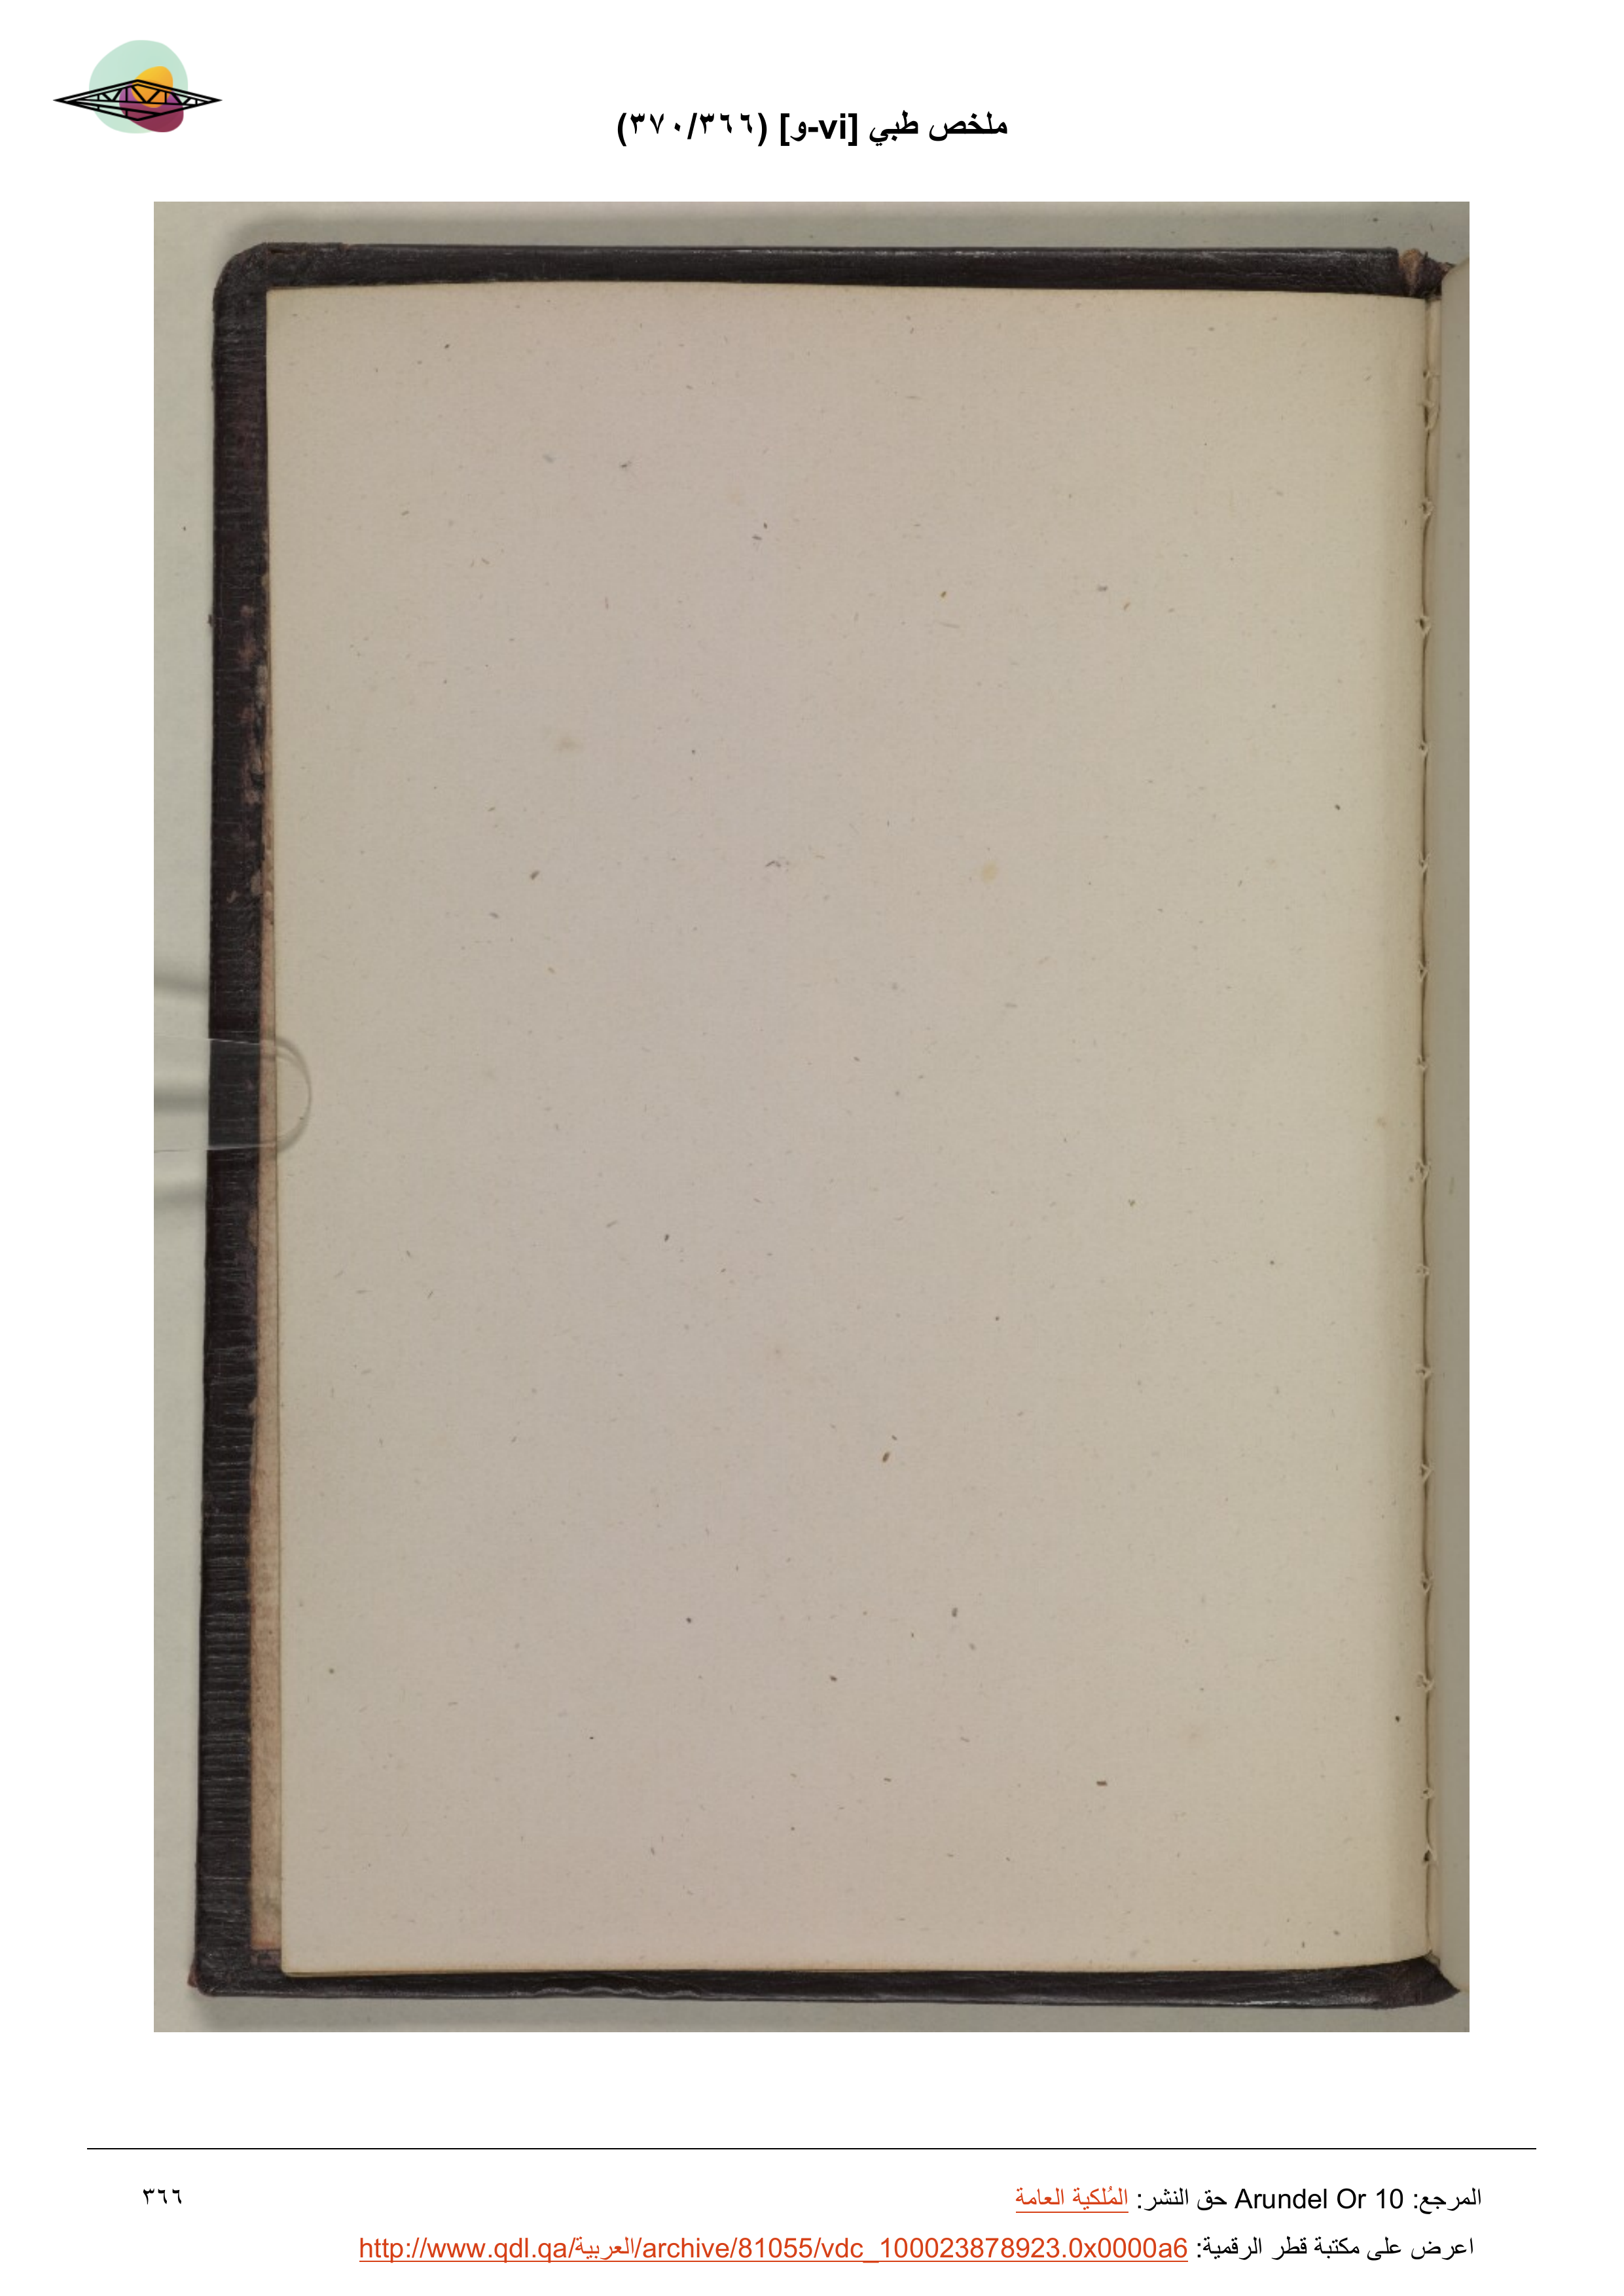 ملخص طبي [vi-و] (٣٧٠/٣٦٦)
المرجع: Arundel Or 10 حق النشر: المُلكية العامة
٣٦٦
اعرض على مكتبة قطر الرقمية: http://www.qdl.qa/العربية/archive/81055/vdc_100023878923.0x0000a6